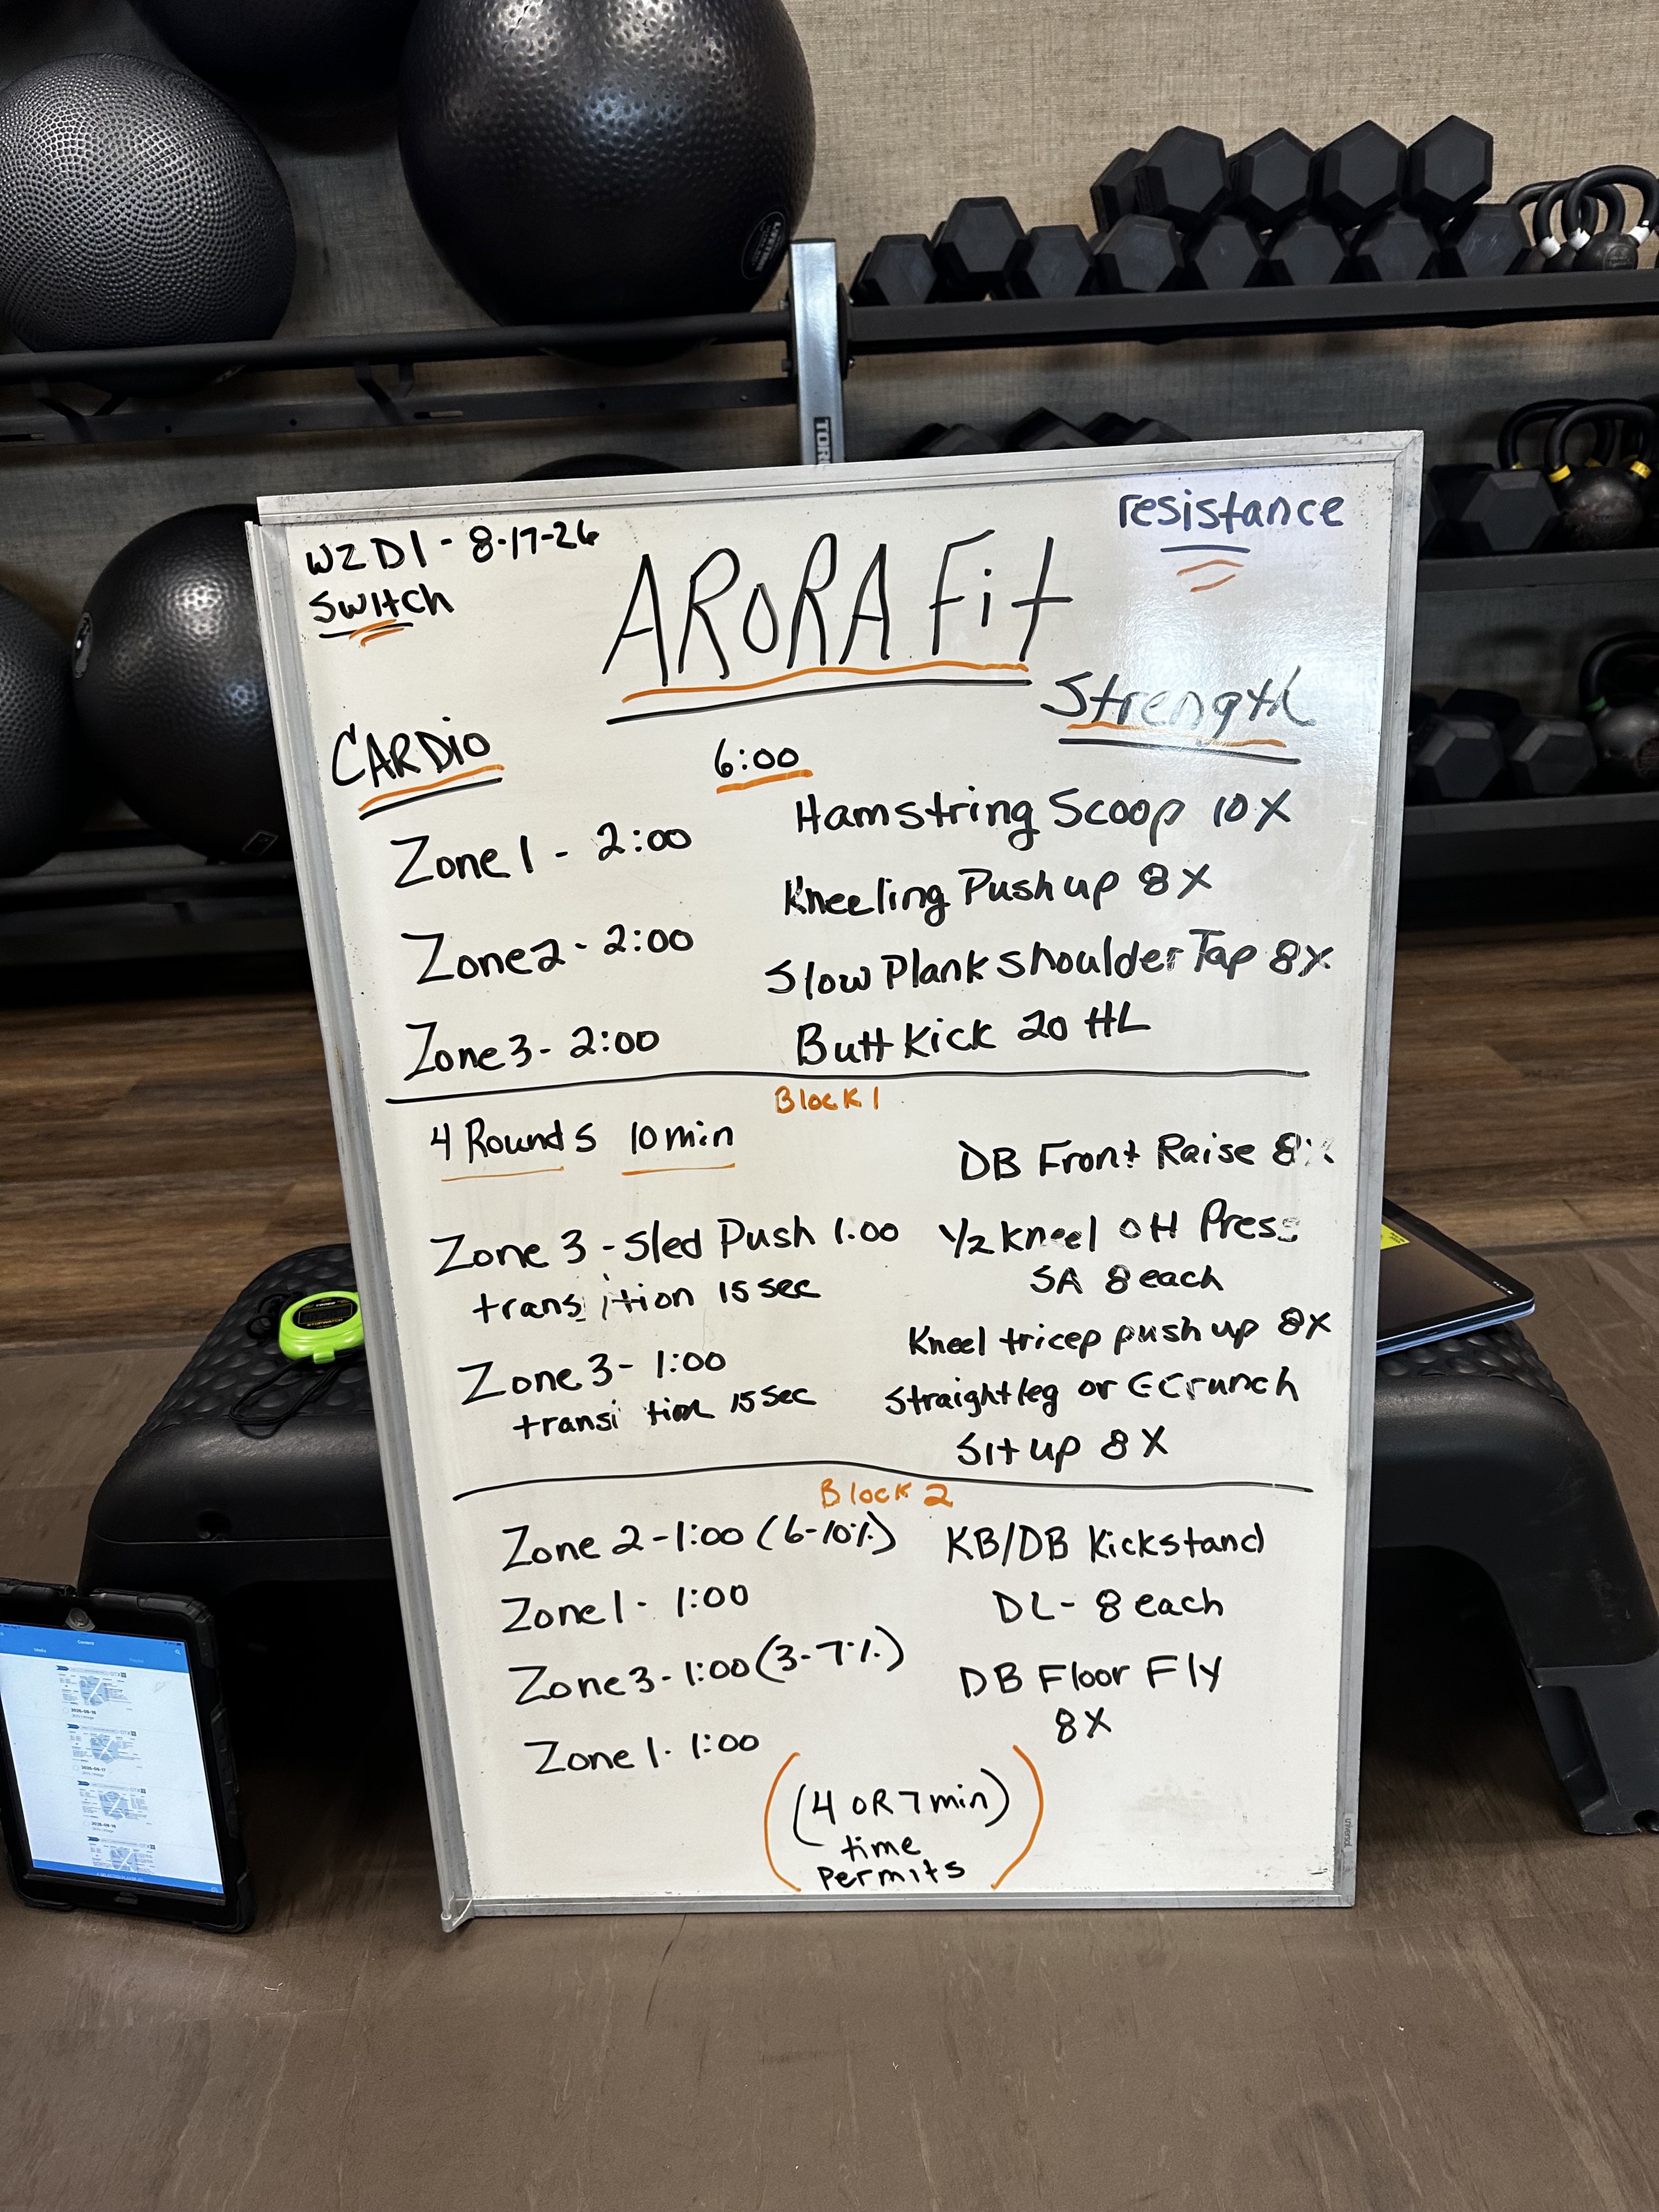 W2D1 - 8-17-26
Switch
resistance
ARORA Fit
CARDio
Strength
6:00
Zone 1 - 2:00
Zone 2 - 2:00
Zone 3 - 2:00
Hamstring Scoop 10X
Kneeling Push up 8X
Slow Plank shoulder Tap 8X
Butt Kick 20 HL
Block 1
4 Rounds 10 min
Zone 3 - Sled Push 1:00
transition 15 sec
Zone 3 - 1:00
transition 15 sec
DB Front Raise 8X
1/2 kneel OH Press
SA 8 each
Kneel tricep push up 8X
Straight leg or Crunch
Sit up 8X
Block 2
Zone 2 - 1:00 (6-10%)
Zone 1 - 1:00
Zone 3 - 1:00 (3-7%)
Zone 1 - 1:00
KB/DB Kickstand
DL - 8 each
DB Floor Fly
8X
(4 OR 7 min)
time
Permits
TOR
universal